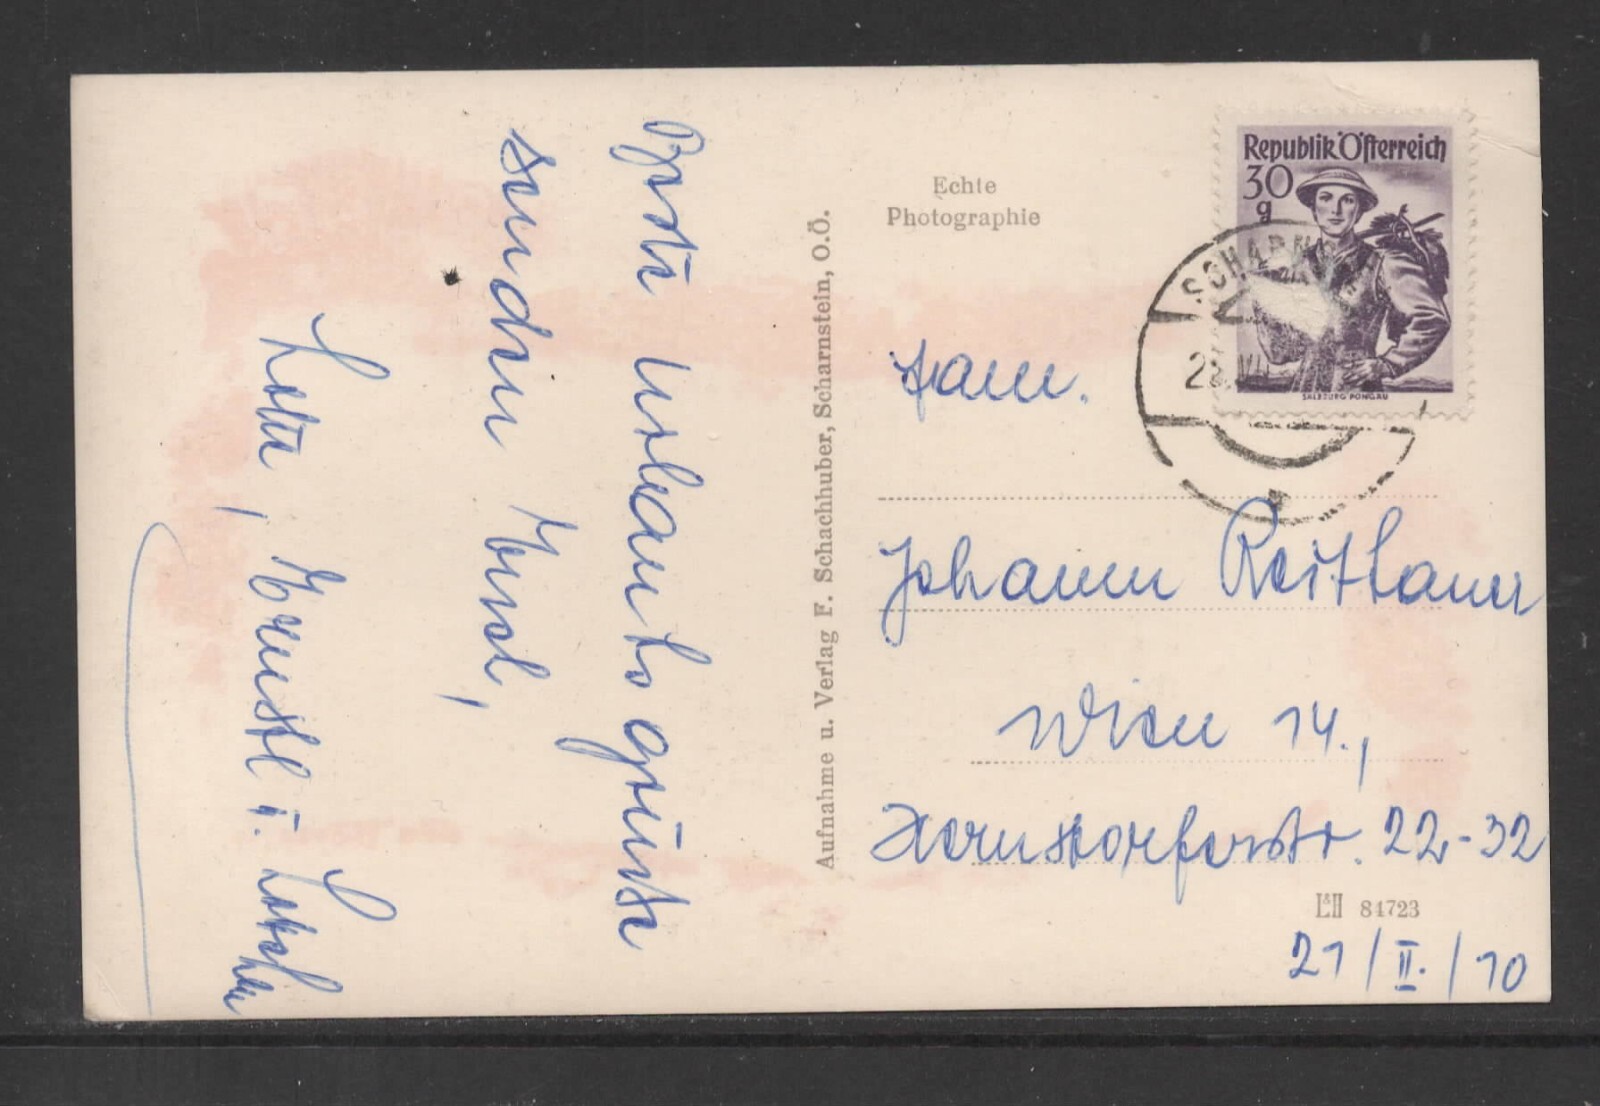 Beste Urlaubsgrüße
senden Euch,
Lotte, Ernstl u.
Aufnahme u. Verlag F. Schachhuber, Scharnstein, O.Ö.
Echte
Photographie
Republik Österreich
30
g
SALZBURG PONGAU
SCHARNSTEIN
Fam.
Johann Reitbauer
Wien 14.,
22-32
L&H 84723
21/II./10